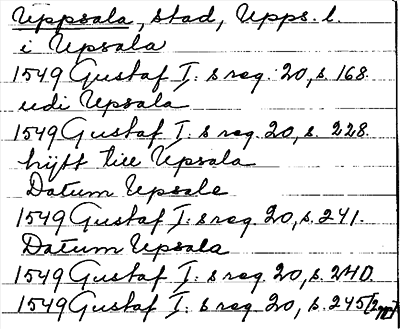 Uppsala, stad, Upps. l.
i Upsala
1549 Gustaf I: s reg. 20, s. 168.
udi Upsala
1549 Gustaf I: s reg. 20, s. 228.
hijtt till Upsala
Datum Upsale
1549 Gustaf I: s reg. 20, s. 241.
Datum Upsala
1549 Gustaf I: s reg. 20, s. 240.
1549 Gustaf I: s reg. 20, s. 245